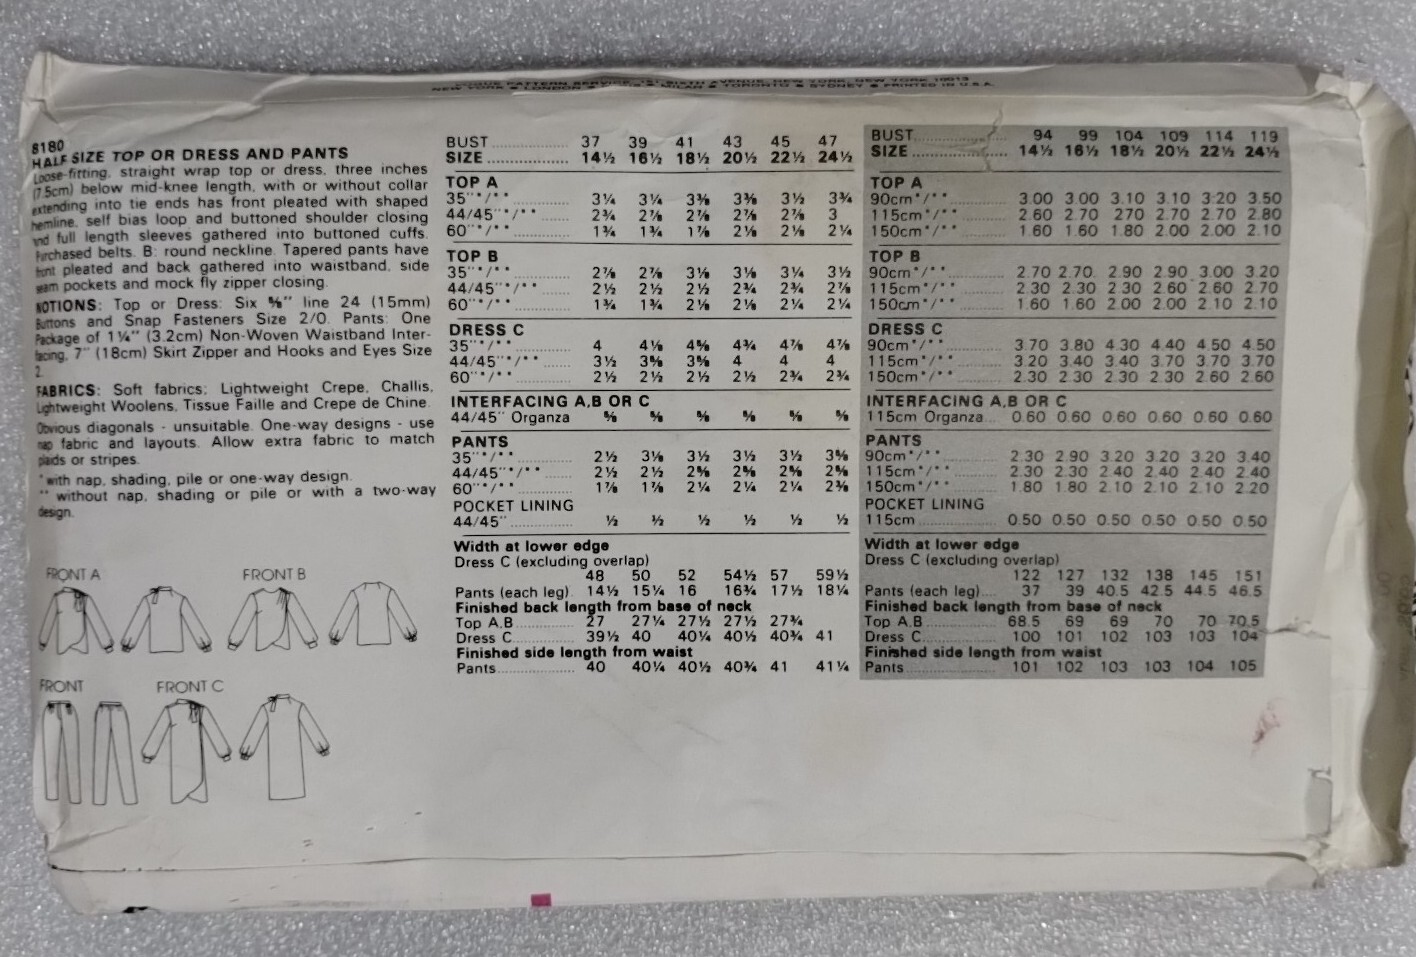 VOGUE PATTERN SERVICE, 161 SIXTH AVENUE, NEW YORK, NEW YORK 10013
NEW YORK ● LONDON ● MILAN ● TORONTO ● SYDNEY ● PRINTED IN U.S.A.
8180
HALF SIZE TOP OR DRESS AND PANTS
Loose-fitting, straight wrap top or dress, three inches
(7.5cm) below mid-knee length, with or without collar
extending into tie ends has front pleated with shaped
hemline, self bias loop and buttoned shoulder closing
and full length sleeves gathered into buttoned cuffs.
Purchased belts. B: round neckline. Tapered pants have
front pleated and back gathered into waistband, side
seam pockets and mock fly zipper closing.
NOTIONS: Top or Dress: Six ⅝" line 24 (15mm)
Buttons and Snap Fasteners Size 2/0. Pants: One
Package of 1¼" (3.2cm) Non-Woven Waistband Inter-
facing, 7" (18cm) Skirt Zipper and Hooks and Eyes Size
2.
FABRICS: Soft fabrics; Lightweight Crepe, Challis,
Lightweight Woolens, Tissue Faille and Crepe de Chine.
Obvious diagonals - unsuitable. One-way designs - use
nap fabric and layouts. Allow extra fabric to match
plaids or stripes.
*with nap, shading, pile or one-way design.
**without nap, shading or pile or with a two-way
design.
FRONT A
FRONT B
FRONT
FRONT C
BUST 37 39 41 43 45 47
SIZE 14½ 16½ 18½ 20½ 22½ 24½
TOP A
35"*/** 3¼ 3¼ 3⅜ 3⅜ 3½ 3¾
44/45"*/** 2¾ 2⅞ 2⅞ 2⅞ 2⅞ 3
60"*/** 1¾ 1¾ 1⅞ 2⅛ 2⅛ 2¼
TOP B
35"*/** 2⅞ 2⅞ 3⅛ 3⅛ 3¼ 3½
44/45"*/** 2½ 2½ 2½ 2¾ 2¾ 2⅞
60"*/** 1¾ 1¾ 2⅛ 2⅛ 2¼ 2¼
DRESS C
35"*/** 4 4⅛ 4⅝ 4¾ 4⅞ 4⅞
44/45"*/** 3½ 3⅝ 3⅝ 4 4 4
60"*/** 2½ 2½ 2½ 2½ 2¾ 2¾
INTERFACING A,B OR C
44/45" Organza ⅝ ⅝ ⅝ ⅝ ⅝ ⅝
PANTS
35"*/** 2½ 3⅛ 3½ 3½ 3½ 3⅝
44/45"*/** 2½ 2½ 2⅝ 2⅝ 2⅝ 2⅝
60"*/** 1⅞ 1⅞ 2¼ 2¼ 2¼ 2⅜
POCKET LINING
44/45" ½ ½ ½ ½ ½ ½
Width at lower edge
Dress C (excluding overlap)
48 50 52 54½ 57 59½
Pants (each leg) 14½ 15¼ 16 16¾ 17½ 18¼
Finished back length from base of neck
Top A,B 27 27¼ 27½ 27½ 27¾
Dress C 39½ 40 40¼ 40½ 40¾ 41
Finished side length from waist
Pants 40 40¼ 40½ 40¾ 41 41¼
BUST 94 99 104 109 114 119
SIZE 14½ 16½ 18½ 20½ 22½ 24½
TOP A
90cm*/** 3.00 3.00 3.10 3.10 3.20 3.50
115cm*/** 2.60 2.70 270 2.70 2.70 2.80
150cm*/** 1.60 1.60 1.80 2.00 2.00 2.10
TOP B
90cm*/** 2.70 2.70 2.90 2.90 3.00 3.20
115cm*/** 2.30 2.30 2.30 2.60 2.60 2.70
150cm*/** 1.60 1.60 2.00 2.00 2.10 2.10
DRESS C
90cm*/** 3.70 3.80 4.30 4.40 4.50 4.50
115cm*/** 3.20 3.40 3.40 3.70 3.70 3.70
150cm*/** 2.30 2.30 2.30 2.30 2.60 2.60
INTERFACING A,B OR C
115cm Organza 0.60 0.60 0.60 0.60 0.60 0.60
PANTS
90cm*/** 2.30 2.90 3.20 3.20 3.20 3.40
115cm*/** 2.30 2.30 2.40 2.40 2.40 2.40
150cm*/** 1.80 1.80 2.10 2.10 2.10 2.20
POCKET LINING
115cm 0.50 0.50 0.50 0.50 0.50 0.50
Width at lower edge
Dress C (excluding overlap)
122 127 132 138 145 151
Pants (each leg) 37 39 40.5 42.5 44.5 46.5
Finished back length from base of neck
Top A,B 68.5 69 69 70 70 70.5
Dress C 100 101 102 103 103 104
Finished side length from waist
Pants 101 102 103 103 104 105